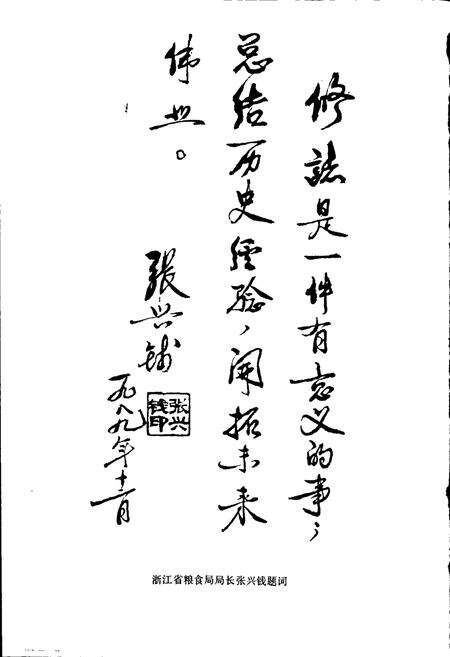 修誌是一件有意义的事，
总结历史经验，开拓未来
伟业。
张兴钱
张兴
钱印
一九八九年十一月
浙江省粮食局局长张兴钱题词